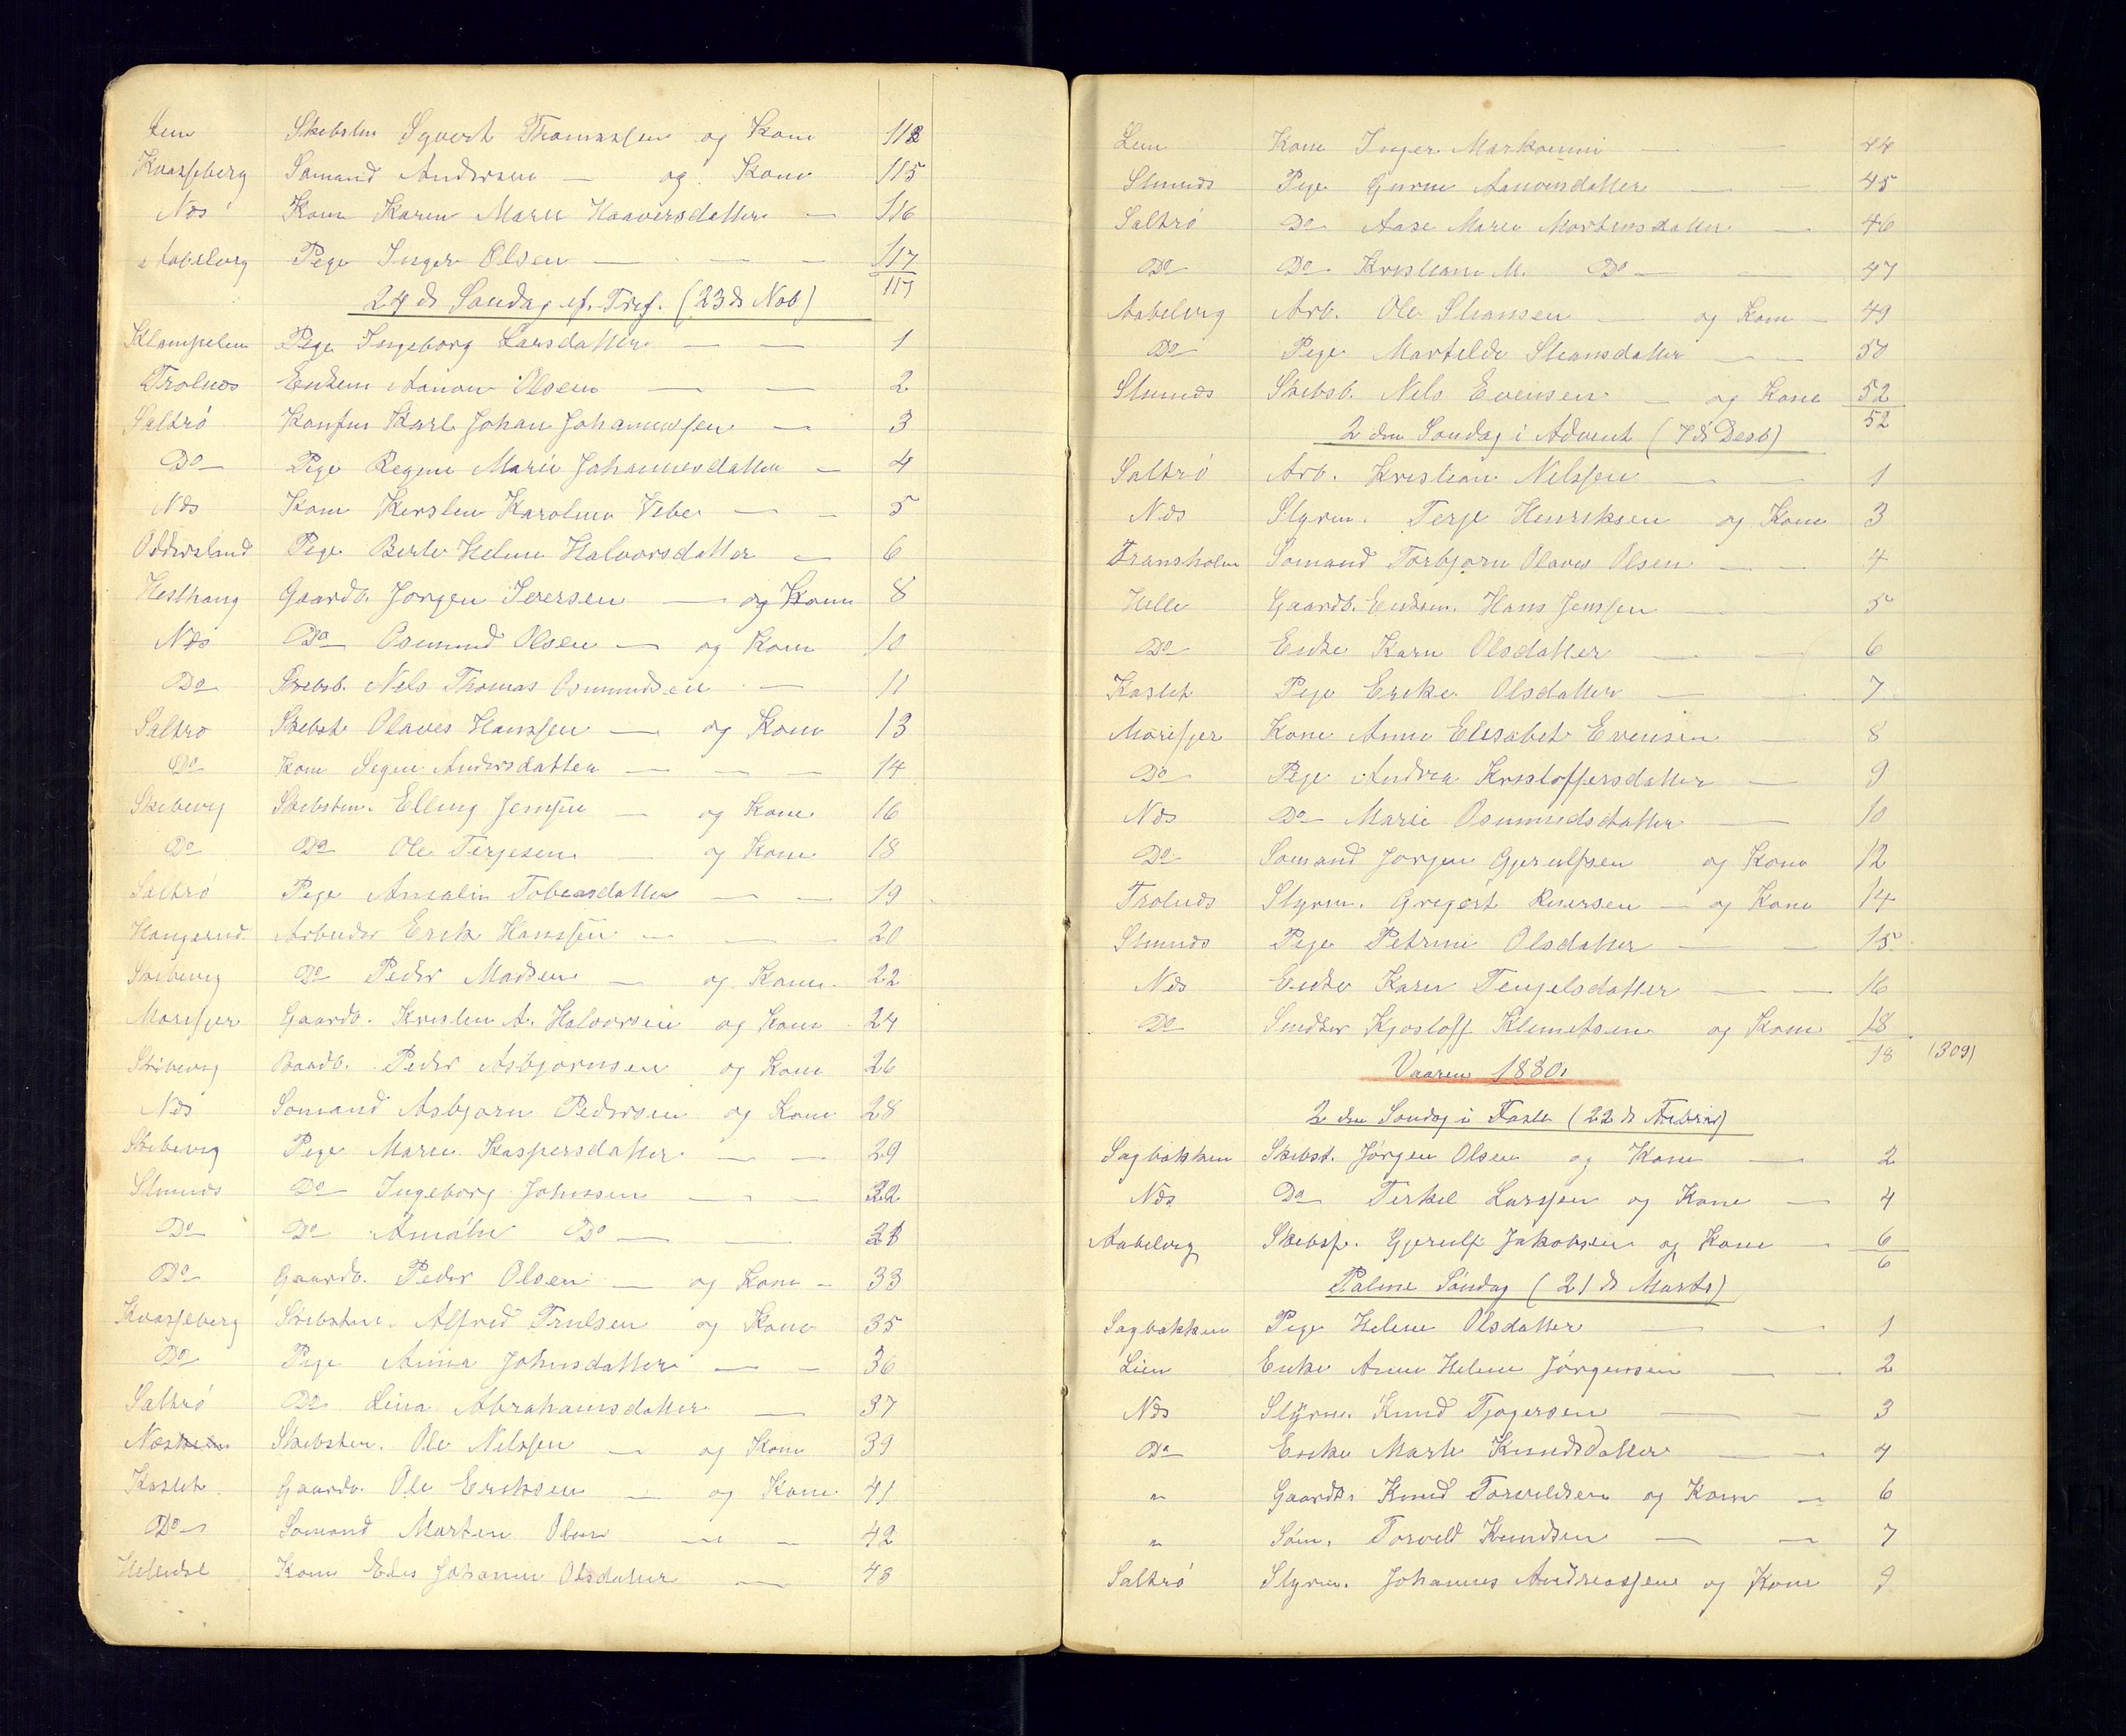 Lien Skibstm Syvert Thomassen og Kone 112
Kvasseberg Sømand Andersen — og Kone 115
Næs Kone Karen Marie Haaversdatter — 116
Aabelvig Pige Inger Olsen — — — 117
117
24de Søndag ef. Tref. (23de Nob)
Klampelien Pige Ingeborg Larsdatter — — 1
Trolnæs Enkem Aanon Olsen — — 2
Saltrö Konfm Karl Johan Johannessen — 3
Do Pige Regine Marie Johannesdatter — 4
Næs Kone Kirsten Karoline Vibe — — 5
Oddersland Pige Berte Helene Halvorsdatter — 6
Hesthaug Gaardb. Jørgen Iversen — og Kone 8
Næs Do Osmund Olsen — og Kone 10
Do Skibsb. Nels Thomas Osmundsen — 11
Saltrø Skibst Olaves Hanssen — og Kone 13
Do Kone Signe Andersdatter — — — 14
Skibevig Skibstm. Elling Jenssen — og Kone 16
Do Do Ole Terjesen — og Kone 18
Saltrö Pige Amalie Tobiasdatter — — 19
Arbeider Erik Hanssen — — — 20
Skibevig Do Peder Madsen — og Kone 22
Moresjer Gaardb. Kristen A. Halvorsen og Kone 24
Skibevig Gaardb. Peder Asbjørnsen og Kone 26
Næs Sømand Asbjørn Pedersen og Kone 28
Skibevig Pige Marie Kaspersdatter — — 29
Stunæs Do Ingeborg Johnssen — — 32
Do Do Amalie Do — — 31
Do Gaardb. Peder Olsen — og Kone — 33
Kvasseberg Skibstm. Alfred Trulsen og Kone 35
Do Pige Anna Johnsdatter — — 36
Saltrö Do Lina Abrahamsdatter — 37
Næs Skibstm. Ole Nilssen — og Kone 39
Kaslet Gaardb. Ole Eriksen — og Kone 41
Do Sømand Morten Olsen — — 42
Kone Edes Johanne Olsdatter — 43
Lien Kone Inger — — 44
Stunæs Pige Gurine Aanonsdatter — — 45
Saltrö Do Aase Marie Mortensdatter — 46
Do Do Kristiane M. Do — — 47
Aabelvig Arb. Ole Stiansen — og Kone — 49
Do Pige Martilde Stiansdatter — — 50
Stunæs Skibsb. Nils Evensen — og Kone 52
52
2den Søndag i Advent (7de Desb)
Saltrö Arb. Kristian Nilssen — — 1
Næs Styrm. Terje Henriksen og Kone 3
Fransholm Sømand Torbjørn Olaves Olsen — — 4
Helle Gaardb. Enkem. Hans Jenssen — 5
Do Enke Karen Olsdatter — — 6
Kaslet Pige Erike Olsdatter — — 7
Moresjer Kone Anne Elesabet Evensen — 8
Do Pige Andrea Kristoffersdatter — 9
Næs Do Marie Osmundsdatter — 10
Do Sømand Jørgen Gjerulfsen og Kone 12
Trolnæs Styrm. Gregert Reiersen — og Kone 14
Stunæs Pige Petrine Olsdatter — — 15
Næs Enke Karen Tengelsdatter — — 16
Do Snedker Kjøstolf Klemetsen og Kone 18
18 (309)
Vaaren 1880.
2den Søndag i Faste (22de Febr)
Sagbakken Skibst. Jørgen Olsen og Kone — 2
Næs Do Terkel Larssen og Kone — 4
Aabelvig Skibsf. Gjerulf Jakobsen og Kone — 6
6
Palme Søndag (21de Marts)
Sagbakken Pige Helene Olsdatter — — 1
Lien Enke Anne Helene Jörgensen — — 2
Næs Styrm. Knud Tjøgersen — — 3
Do Enke Marte Knudsdatter — — 4
" Gaardb. Knud Torvildsen og Kone — 6
" Søm. Torvild Knudsen — — 7
Saltrö Styrm. Johannes Andreassen og Kone 9